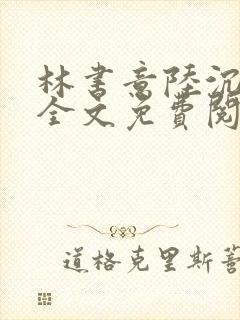 林书意陸沉
全文免費閱
道格克里斯蒂